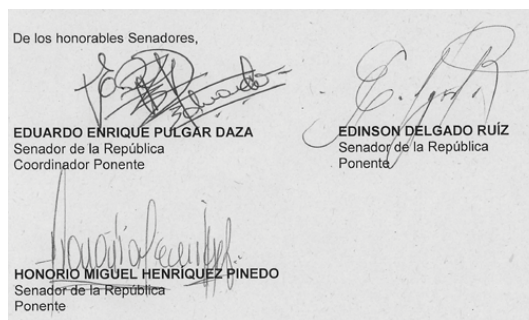 De los honorables Senadores,
EDUARDO ENRIQUE PULGAR DAZA
Senador de la República
Coordinador Ponente
EDINSON DELGADO RUÍZ
Senador de la República
Ponente
HONORIO MIGUEL HENRÍQUEZ PINEDO
Senador de la República
Ponente